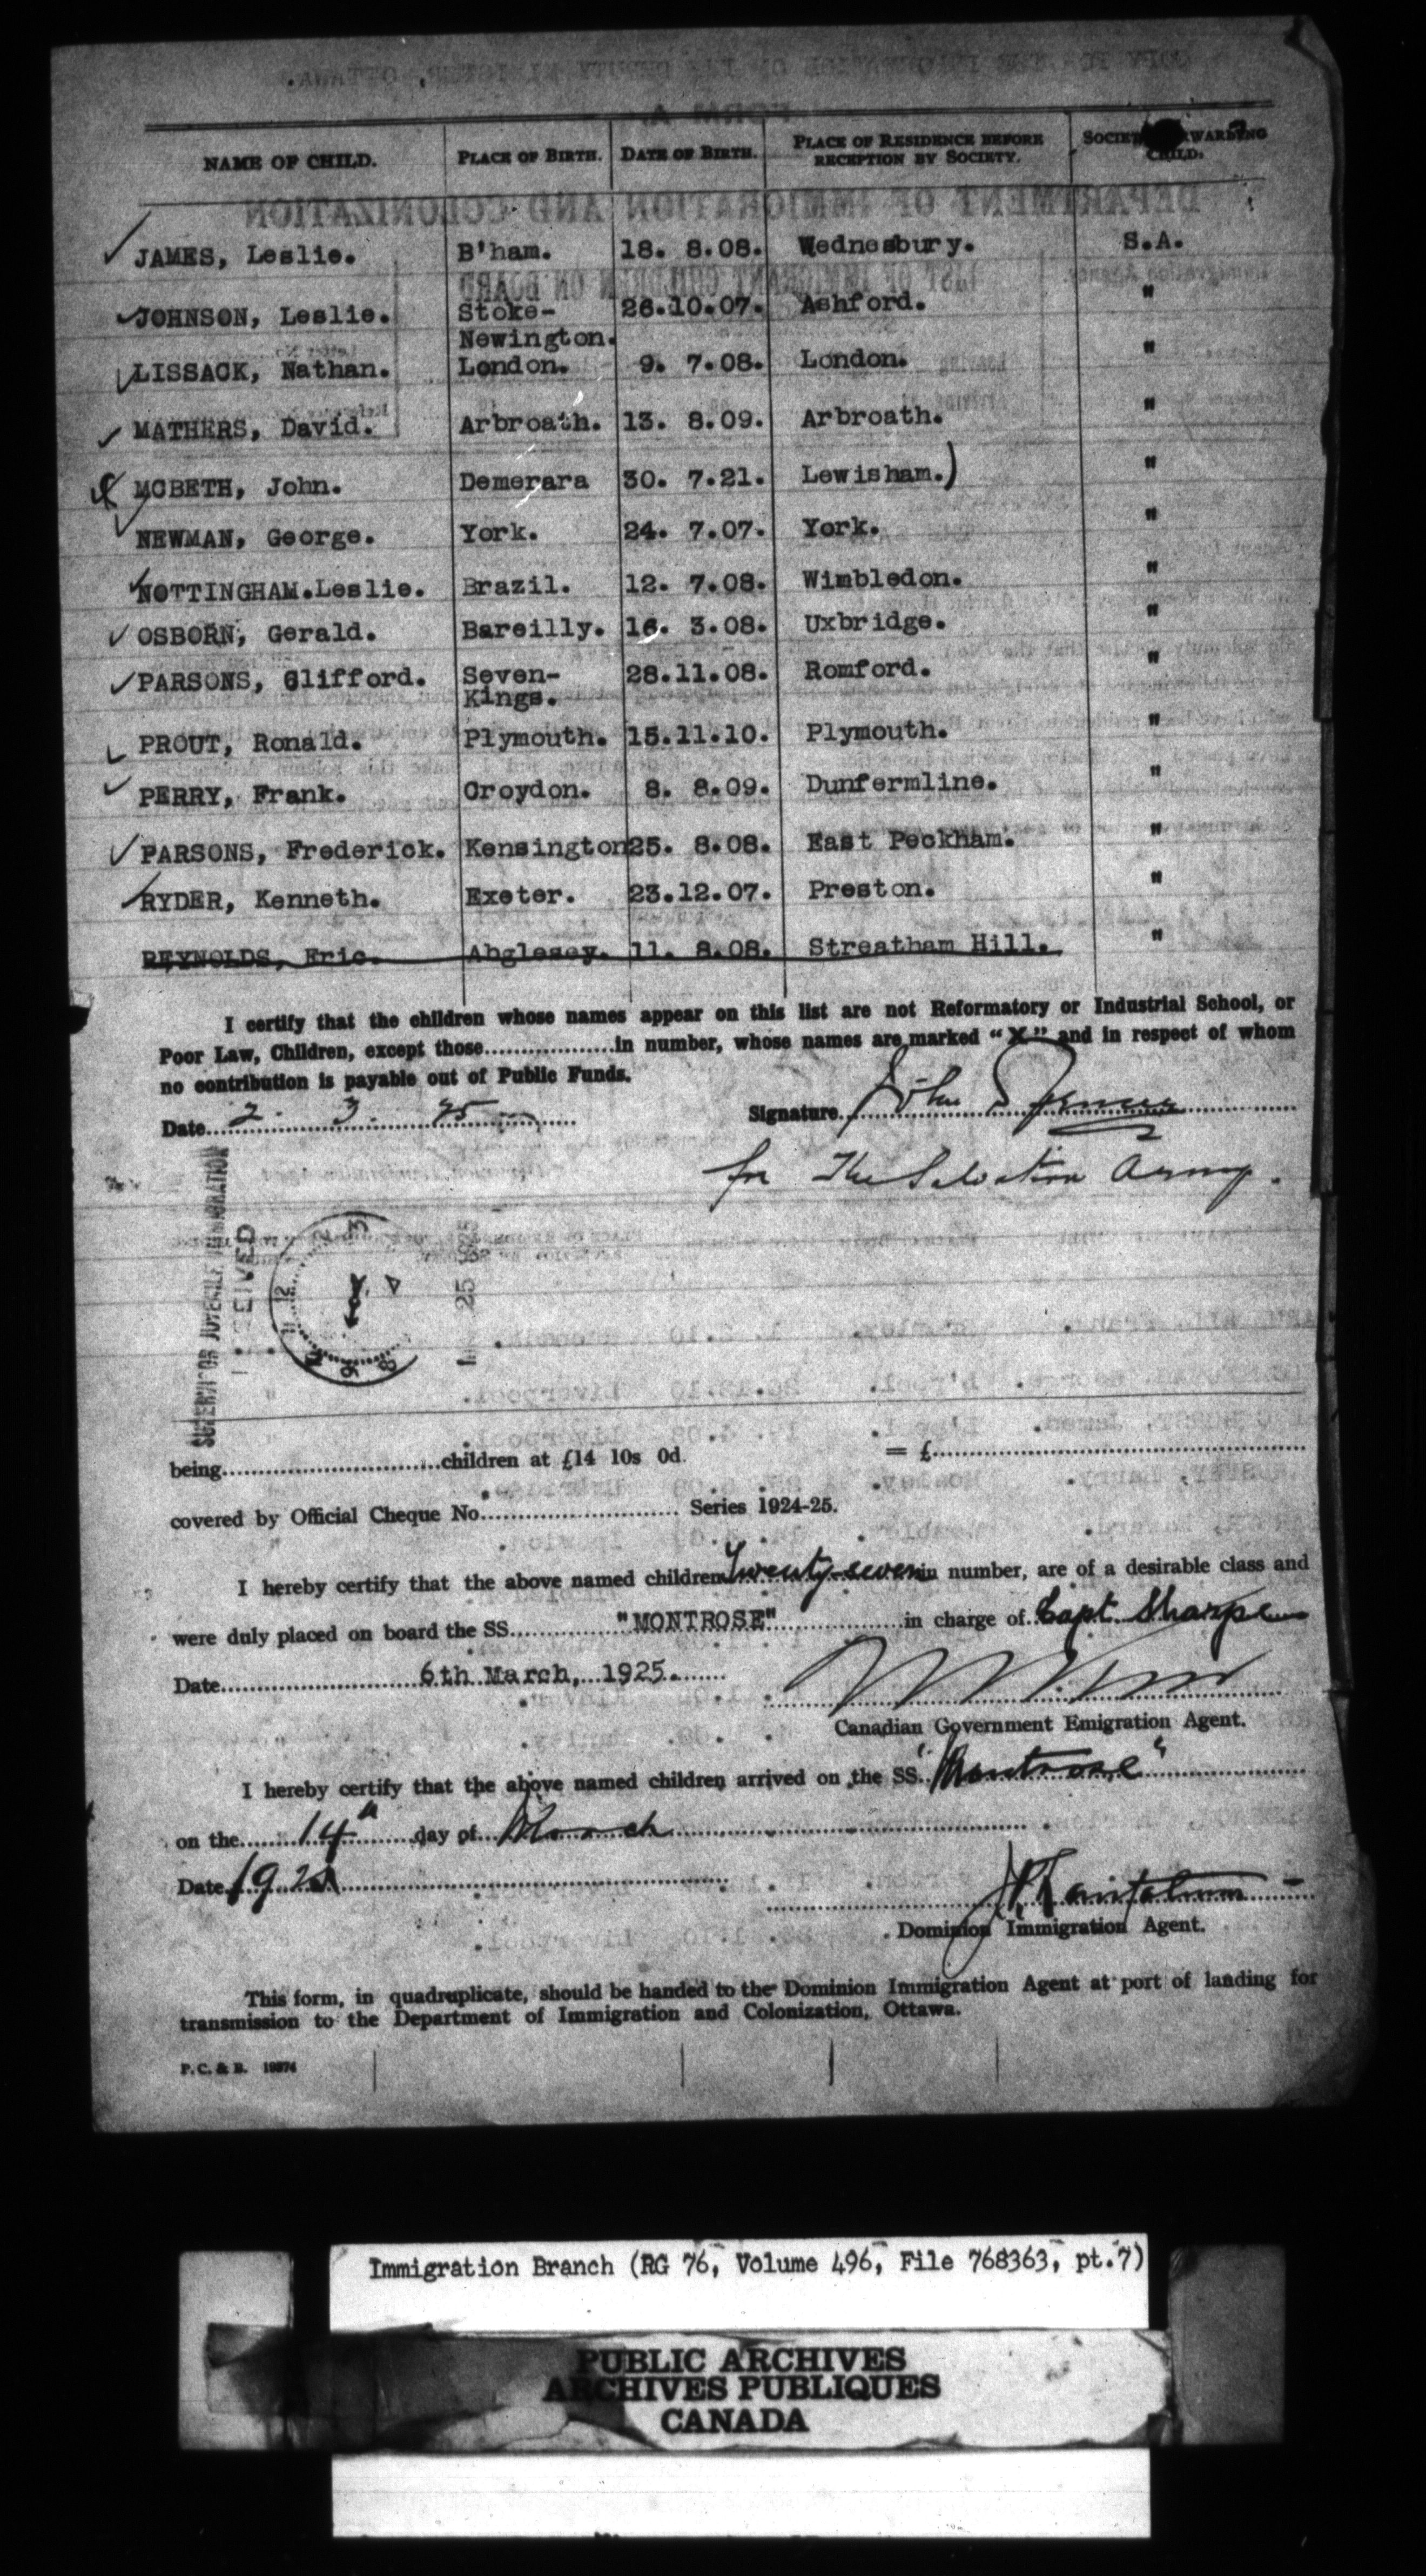 NAME OF CHILD. PLACE OF BIRTH. DATE OF BIRTH. PLACE OF RESIDENCE BEFORE RECEPTION BY SOCIETY. CHILD.
JAMES, Leslie. B'ham. 18. 8.08. Wednesbury. S.A.
JOHNSON, Leslie. Stoke-Newington. 26.10.07. Ashford. "
LISSACK, Nathan. London. 9. 7.08. London. "
MATHERS, David. Arbroath. 13. 8.09. Arbroath. "
MCBETH, John. Demerara 30. 7.21. Lewisham.) "
NEWMAN, George. York. 24. 7.07. York. "
NOTTINGHAM.Leslie. Brazil. 12. 7.08. Wimbledon. "
OSBORN, Gerald. Bareilly. 16. 3.08. Uxbridge. "
PARSONS, Clifford. Seven-Kings. 28.11.08. Romford. "
PROUT, Ronald. Plymouth. 15.11.10. Plymouth. "
PERRY, Frank. Croydon. 8. 8.09. Dunfermline. "
PARSONS, Frederick. Kensington 25. 8.08. East Peckham. "
RYDER, Kenneth. Exeter. 23.12.07. Preston. "
REYNOLDS, Eric. Abglesey. 11. 8.08. Streatham Hill. "
I certify that the children whose names appear on this list are not Reformatory or Industrial School, or
Poor Law, Children, except those..................in number, whose names are marked "X" and in respect of whom
no contribution is payable out of Public Funds.
Date 2. 3. 25 Signature John
for The Salvation Army.
SUPERVISOR JUVENILE IMMIGRATION
RECEIVED
being..............................children at £14 10s 0d. = £
covered by Official Cheque No........................... Series 1924-25.
I hereby certify that the above named children Twenty-seven in number, are of a desirable class and
were duly placed on board the SS. "MONTROSE" in charge of Capt. Sharpe
Date 6th March, 1925.
Canadian Government Emigration Agent.
I hereby certify that the above named children arrived on the SS. "Montrose"
on the 14th day of March
Date 192
Dominion Immigration Agent.
This form, in quadruplicate, should be handed to the Dominion Immigration Agent at port of landing for
transmission to the Department of Immigration and Colonization, Ottawa.
P. C. & B.
Immigration Branch (RG 76, Volume 496, File 768363, pt.7)
PUBLIC ARCHIVES
ARCHIVES PUBLIQUES
CANADA